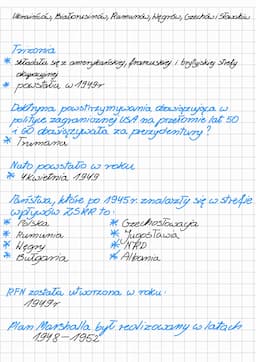 Ukraińców, Białorusinów, Rumunów, Węgrów, Czechów i Słowaków
Trizonia
* składała się z amerykańskiej, francuskiej i brytyjskiej strefy
okupacyjnej
* powstała w 1949r
Doktryna powstrzymywania obowiązująca w
polityce zagranicznej USA na przełomie lat 50
i 60 obowiązywała za prezydentury?
* Trumana
Nato powstało w roku
* 4 kwietnia 1949
Państwa, które po 1945r. znalazły się w strefie
wpływów ZSRR to:
* Polska * Czechosłowacja
* Rumunia * Jugosławia
* Węgry * NRD
* Bułgaria * Albania
RFN została utworzona w roku:
1949r
Plan Marshalla był realizowany w latach
1948-1952